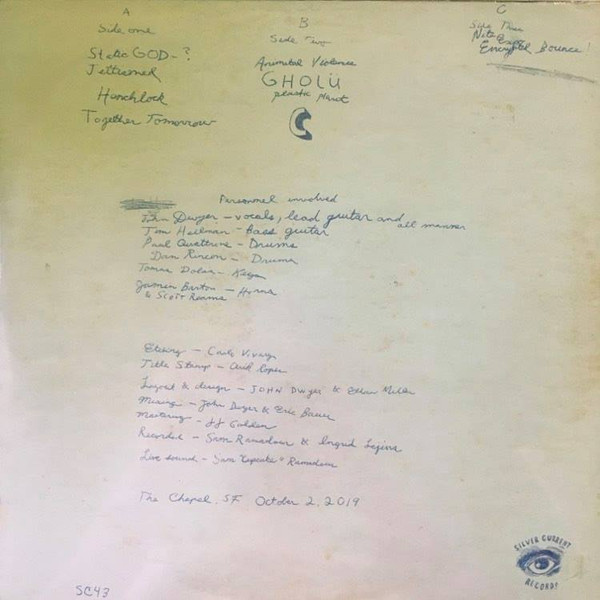 A
Side one
Static GOD - ?
Jettisoned
Henchlock
Together Tomorrow
B
Side Two
Animated Violence
GHOLÜ
plastic plant
C
Side Three
Nite Expo
Encrypted Bounce!
Personnel involved
John Dwyer - vocals, lead guitar and all manner
Tim Hellman - Bass guitar
Paul Quattrone - Drums
Dan Rincon - Drums
Tomas Dolas - Keys
Brad Caulkins
Etching -
Title Stamp -
Layout & design - JOHN Dwyer & Ethan Miller
Mixing - John Dwyer & Eric Bauer
Mastering - JJ Golden
Recorded - Sam Ramadour & Ingrid
Live sound - Sam "Cupcake" Ramadour
The Chapel, SF October 2, 2019
SC43
SILVER CURRENT
RECORDS